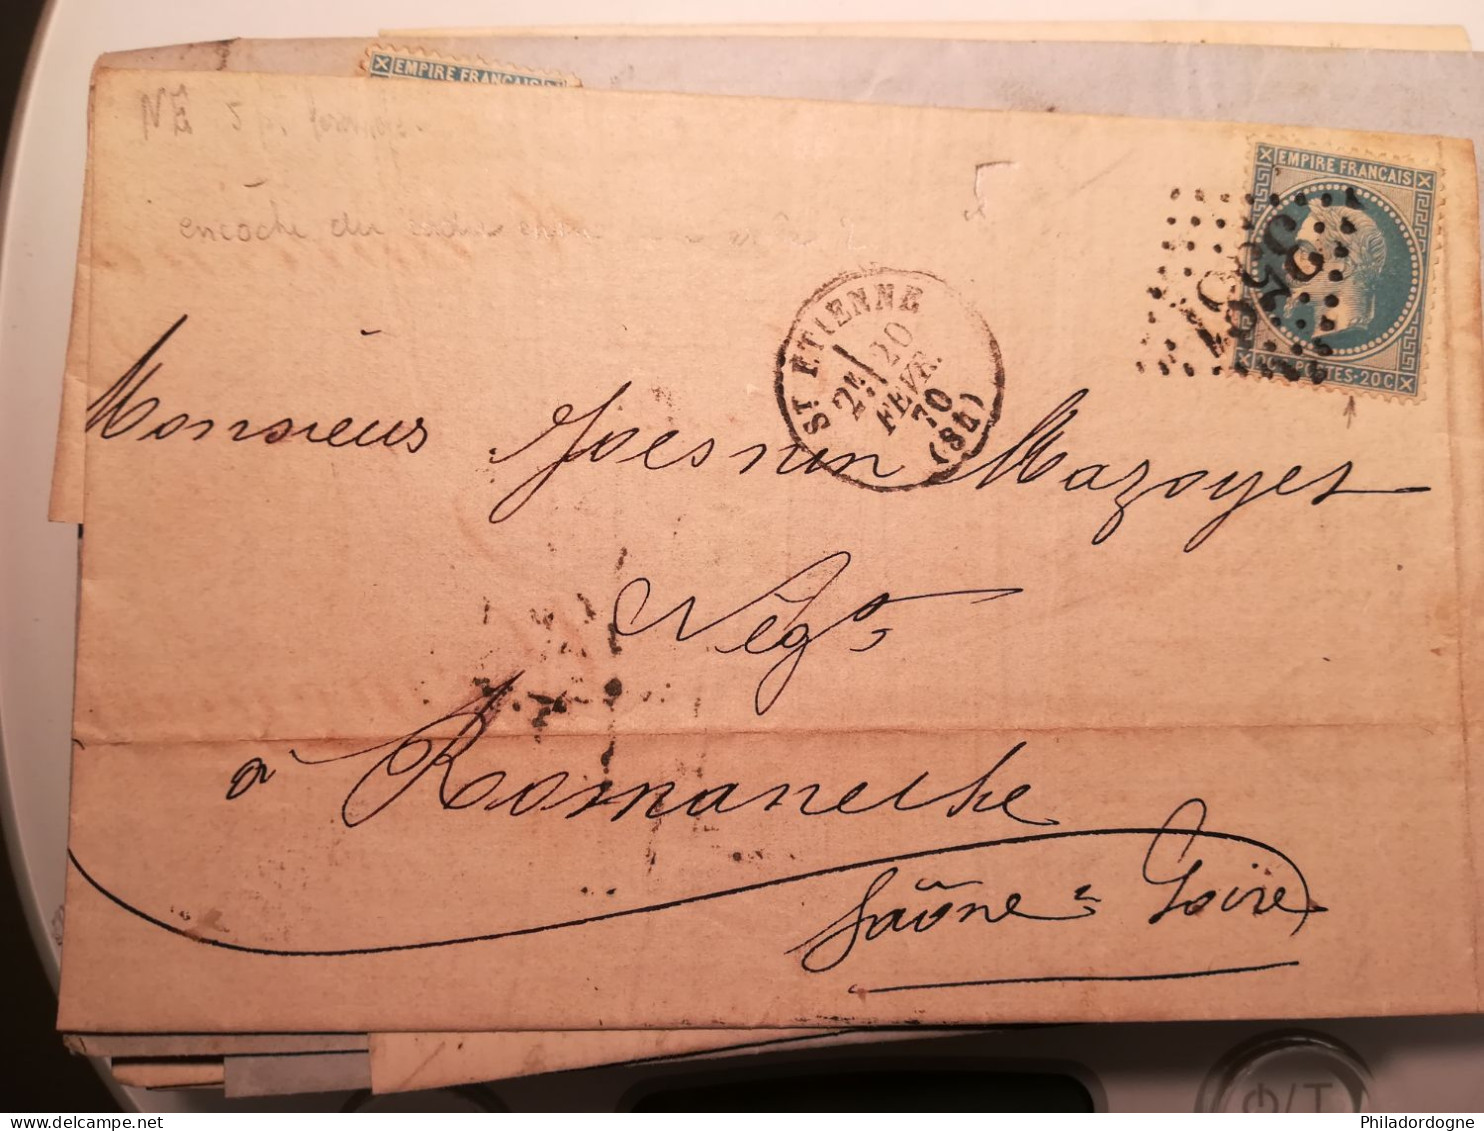 EMPIRE FRANCAIS
encoche du cadre
EMPIRE FRANCAIS
POSTES · 20 C
3581
ST ETIENNE
2E
20
FEVR.
70
(84)
Monsieur Mazoyer
Négt
à Romanèche
Saône & Loire
/T
delcampe.net
Philadordogne